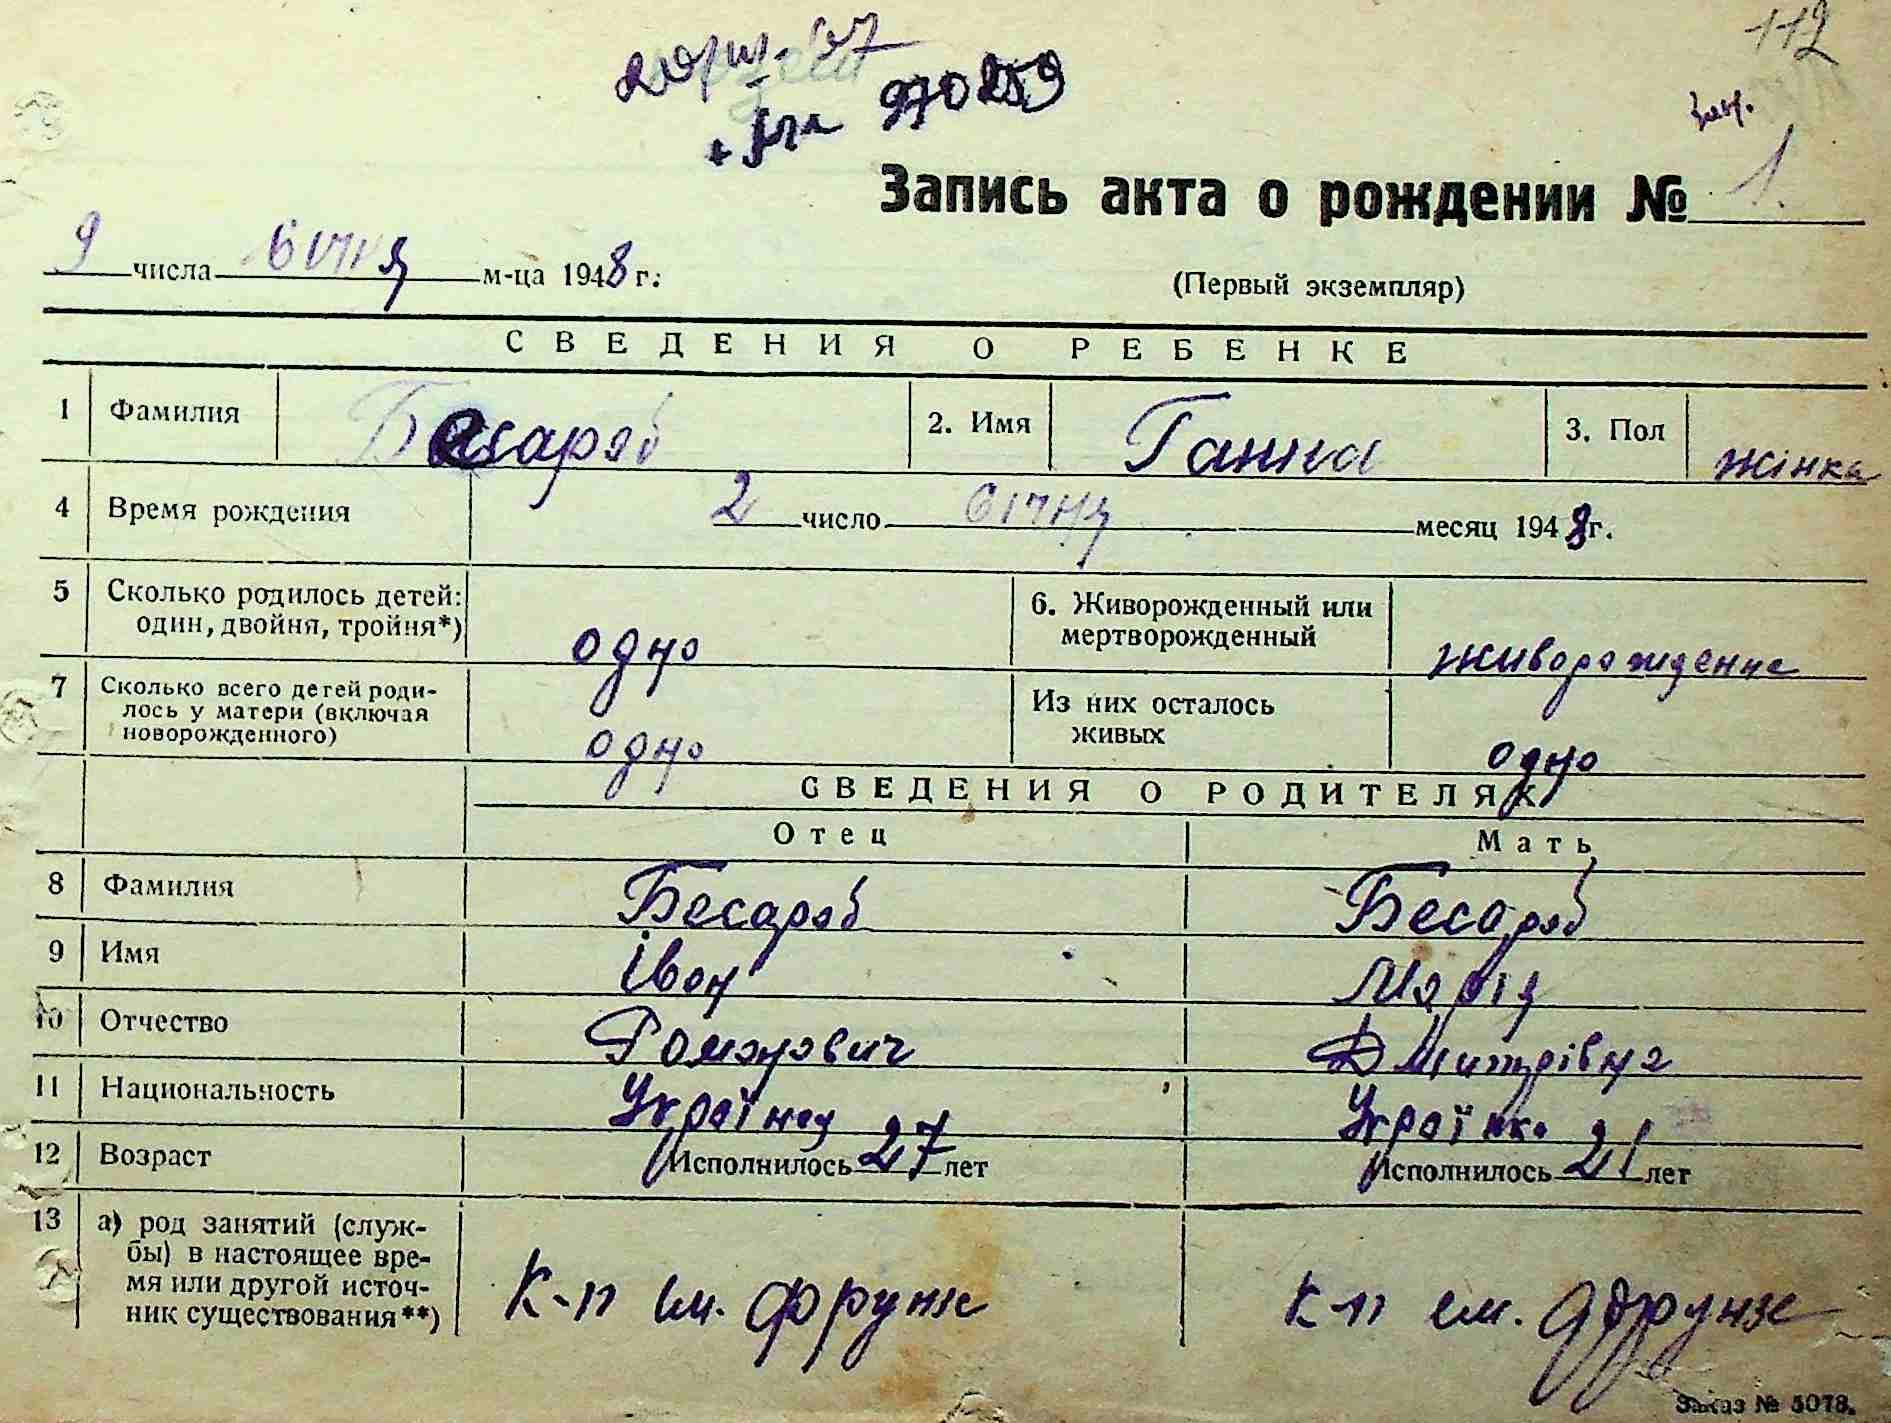 112
970259
Запись акта о рождении № 1.
9 числа січня м-ца 1948 г.
(Первый экземпляр)
СВЕДЕНИЯ О РЕБЕНКЕ
1 Фамилия Бесараб 2. Имя Ганна 3. Пол жінка
4 Время рождения 2 число січня месяц 1948 г.
5 Сколько родилось детей: один, двойня, тройня*) одно 6. Живорожденный или мертворожденный живорождение
7 Сколько всего детей родилось у матери (включая новорожденного) одно Из них осталось живых одно
СВЕДЕНИЯ О РОДИТЕЛЯХ
Отец Мать
8 Фамилия Бесараб Бесараб
9 Имя Іван Марія
10 Отчество Романович Дмитрівна
11 Национальность Українец Українка
12 Возраст Исполнилось 27 лет Исполнилось 21 лет
13 а) род занятий (служ-
бы) в настоящее вре-
мя или другой источ-
ник существования**) К-п им. Фрунзе К-п им. Фрунзе
Заказ № 5078.